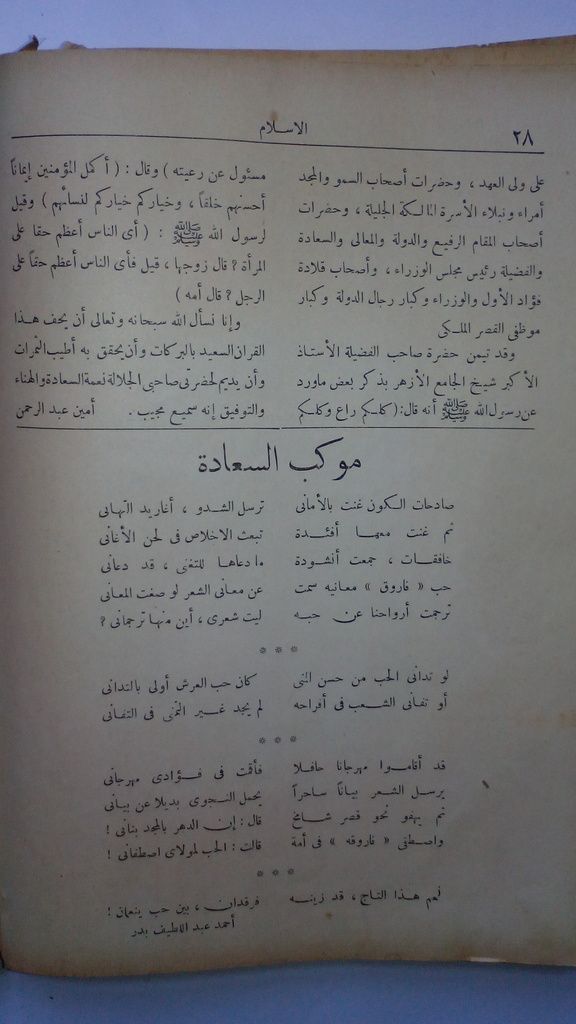 الاسلام
٢٨
على ولى العهد ، وحضرات أصحاب السمو والمجد
أمراء ونبلاء الأسرة المالكة الجليلة ، وحضرات
أصحاب المقام الرفيع والدولة والمعالى والسعادة
والفضيلة رئيس مجلس الوزراء ، وأصحاب قلادة
فؤاد الأول والوزراء وكبار رجال الدولة وكبار
موظفى القصر الملكى
وقد تيمن حضرة صاحب الفضيلة الأستاذ
الأكبر شيخ الجامع الأزهر بذكر بعض ماورد
عن رسول الله ﷺ أنه قال : ( كلكم راع وكلكم
مسئول عن رعيته ) وقال : ( أكمل المؤمنين إيماناً
أحسنهم خلقاً ، وخياركم خياركم لنسائهم ) وقيل
لرسول الله ﷺ : ( أى الناس أعظم حقا على
المرأة ؟ قال زوجها ، قيل فأى الناس أعظم حقاً على
الرجل ؟ قال أمه )
وإنا نسأل الله سبحانه وتعالى أن يحف هذا
القران السعيد بالبركات وأن يحقق به أطيب الثمرات
وأن يديم لحضرتى صاحبى الجلالة نعمة السعادة والهناء
والتوفيق إنه سميع مجيب . أمين عبد الرحمن
موكب السعادة
صادحات الكون غنت بالأمانى ترسل الشدو ، أغاريد التهانى
ثم غنت معها أفئدة تبعث الاخلاص فى لحن الأغانى
خافقات ، جمعت أنشودة ما دعاها للتغنى ، قد دعانى
حب « فاروق » معانيه سمت عن معانى الشعر لو صغت المعانى
ترجمت أرواحنا عن حبه ليت شعرى ، أين منها ترجمانى ؟
* * *
لو تدانى الحب من حسن المنى كان حب العرش أولى بالتدانى
أو تفانى الشعب فى أفراحه لم يجد غير التمنى فى التفانى
* * *
قد أقاموا مهرجانا حافلا فأقمت فى فؤادى مهرجانى
يرسل الشعر بياناً ساحراً يحمل النجوى بديلا عن بيانى
ثم يهفو نحو قصر شامخ قال : إن الدهر بالمجد بنانى !
واصطفى « فاروقه » فى أمة قالت : الحب لمولاى اصطفانى !
* * *
لعم هذا التاج ، قد زينه فرقدان ، بين حب ينعمان !
أحمد عبد اللطيف بدر